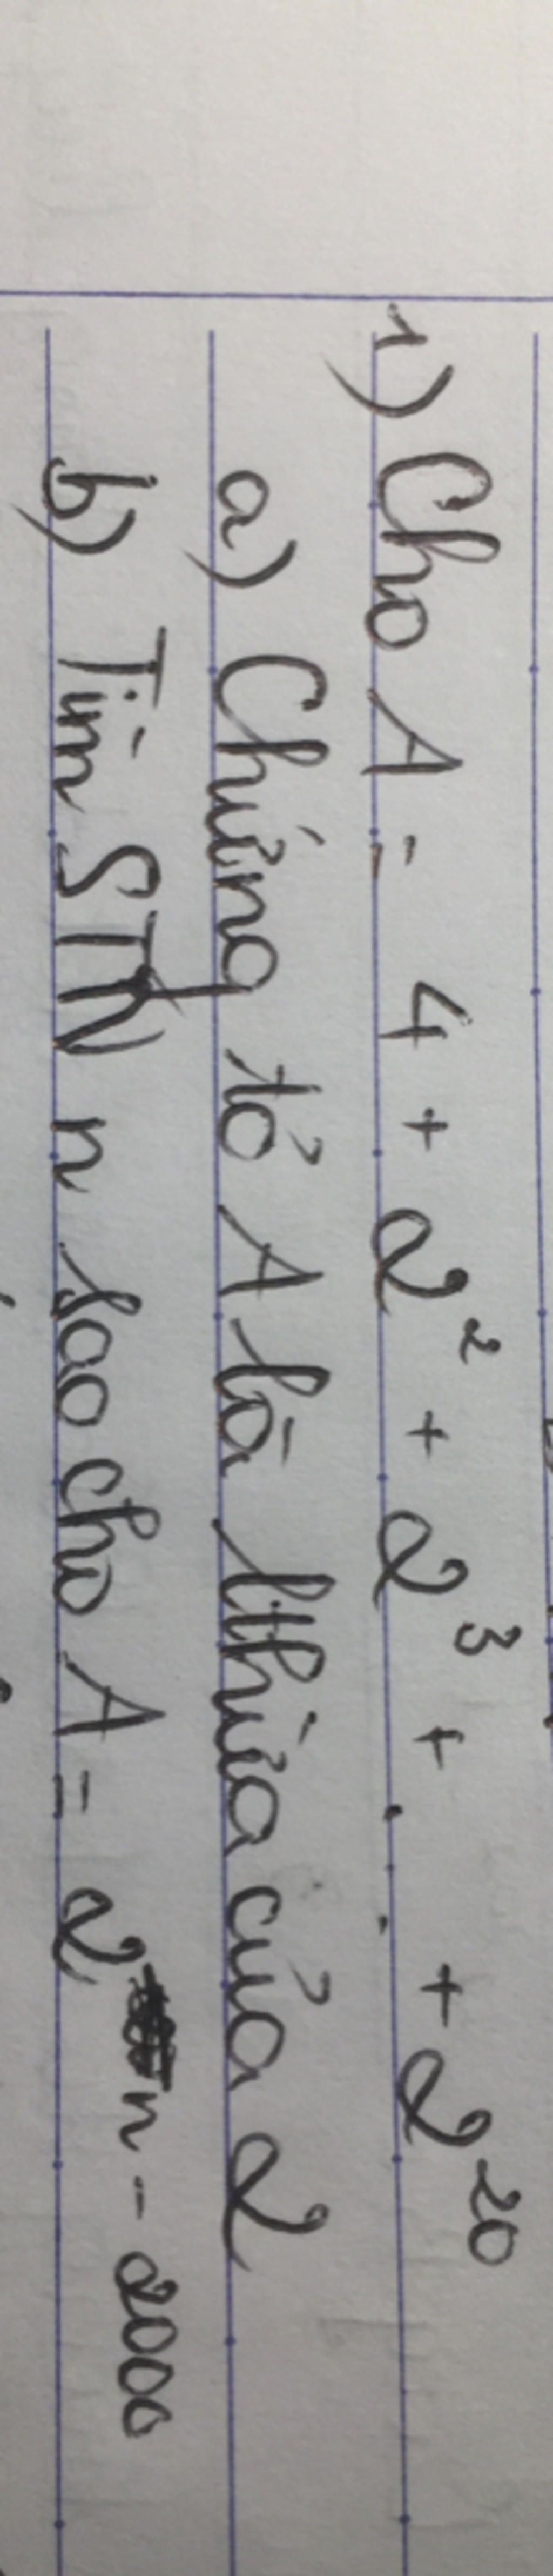 1) Cho A = 4 + 2² + 2³ + ... + 2²⁰
a) Chứng tỏ A là lthừa của 2
b) Tìm STN n sao cho A = 2ⁿ⁻²⁰⁰⁰